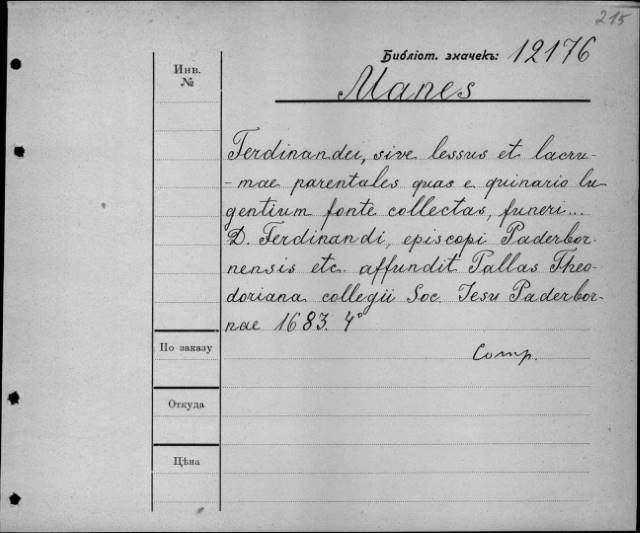 215
Библіот. значекъ: 12176
Инв. №
Manes
Ferdinandei, sive lessus et lacru-
-mae parentales quas e quinario lu
gentium fonte collectas, funeri...
D. Ferdinandi, episcopi Paderbor-
nensis etc. affundit Pallas Theo-
doriana collegii Soc. Iesu Paderbor-
nae 1683. 4°
По заказу
Comp.
Откуда
Цѣна